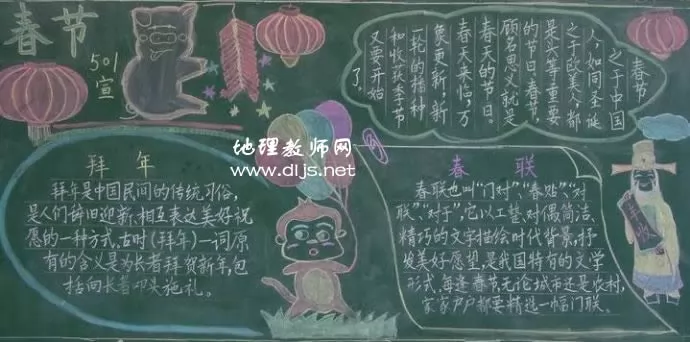 春节
501
宣
春节
之于中国
人，如同圣诞
之于欧美人，都
是头等重要
的节日。春节，
顾名思义就是
春天的节日。
春天来临，万
象更新，新
一轮的播种
和收获季节
又要开始
了。
拜年
拜年是中国民间的传统习俗，
是人们辞旧迎新、相互表达美好祝
愿的一种方式。古时（拜年）一词原
有的含义是为长者拜贺新年，包
括向长者叩头施礼。
地理教师网
www.dljs.net
春联
春联也叫“门对”、“春贴”、“对
联”、“对子”，它以工整、对偶、简洁、
精巧的文字描绘时代背景，抒
发美好愿望，是我国特有的文学
形式，每逢春节，无论城市还是农村，
家家户户都要精选一幅门联。
丰收